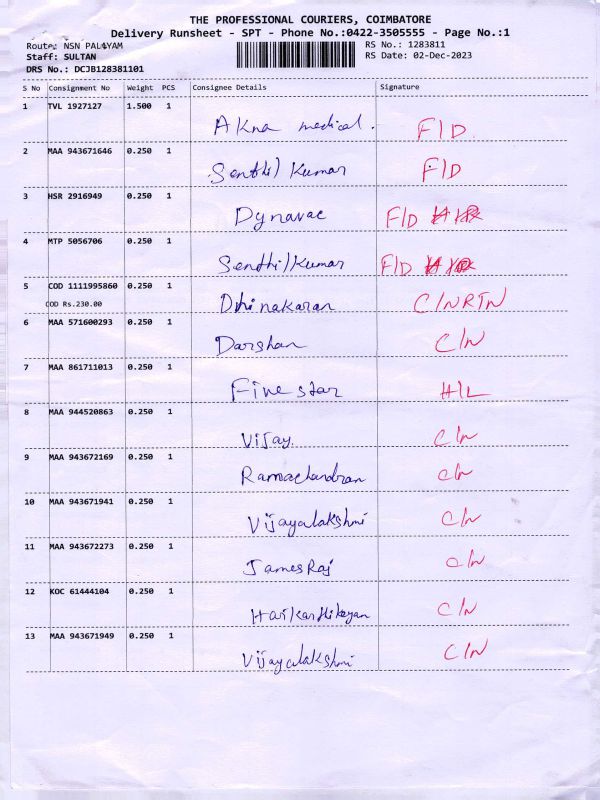 THE PROFESSIONAL COURIERS, COIMBATORE
Delivery Runsheet - SPT - Phone No.:0422-3505555 - Page No.:1
Route: NSN PALAYAM RS No.: 1283811
Staff: SULTAN RS Date: 02-Dec-2023
DRS No.: DCJB128381101
S No Consignment No Weight PCS Consignee Details Signature
1 TVL 1927127 1.500 1
Akna medical. F/D.
2 MAA 943671646 0.250 1
Senthil Kumar F/D
3 HSR 2916949 0.250 1
Dynavac F/D
4 MTP 5056706 0.250 1
Senthil Kumar F/D
5 COD 1111995860 0.250 1
COD Rs.230.00 Dhinakaran C/N RTN
6 MAA 571600293 0.250 1
Darshan C/N
7 MAA 861711013 0.250 1
Five star H/L
8 MAA 944520863 0.250 1
Vijay. C/N
9 MAA 943672169 0.250 1
Ramachandran C/N
10 MAA 943671941 0.250 1
Vijayalakshmi C/N
11 MAA 943672273 0.250 1
James Raj C/N
12 KOC 61444104 0.250 1
Harikarthikeyan C/N
13 MAA 943671949 0.250 1
Vijayalakshmi C/N